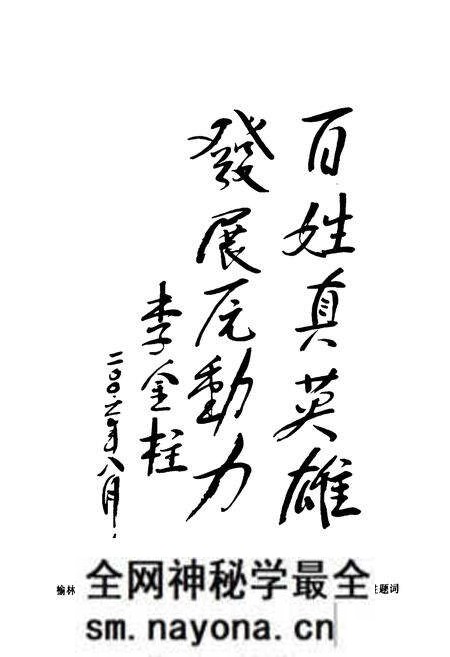 百姓真英雄
發展原動力
李金柱
二〇〇六年八月
榆林
题词
全网神秘学最全
sm.nayona.cn